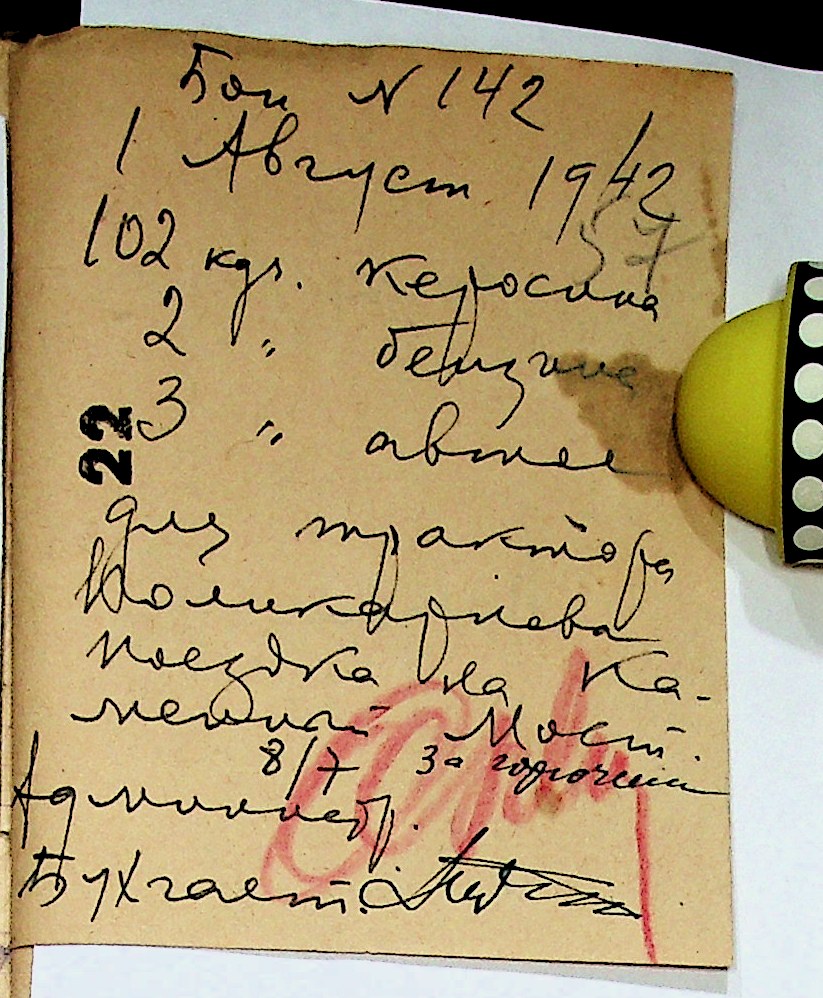 Бон N 142
1 Август 1942
57
102 кгр. керосина
2 " бензина
3 " автол
22
для трактора
Поликарпева
поездка на Ка-
менный Мост.
8/7 за горючим
Администр.
Бухгалт.